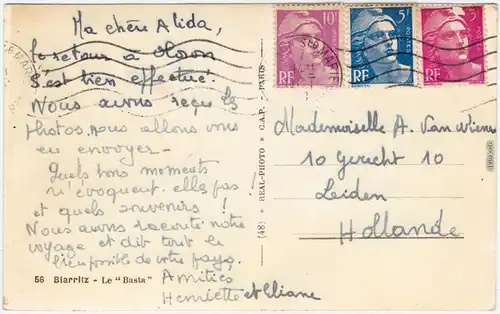 Ma chère Alida,
le retour à Oloron
s'est bien effectué.
Nous avons reçu les
photos, nous allons vous
en envoyer -
Quels bons moments
n'évoquent-elles pas
et quels souvenirs !
Nous avons raconté notre
voyage et dit tout le
bien possible de votre pays.
Amitiés
Henriette et Eliane
56 Biarritz - Le "Basta"
(48) ✻ REAL-PHOTO ✻ C.A.P. - PARIS
10F
RF
5F
POSTES
RF
3F
RF
Mademoiselle A. Van
10 Gerecht 10
Leiden
Hollande